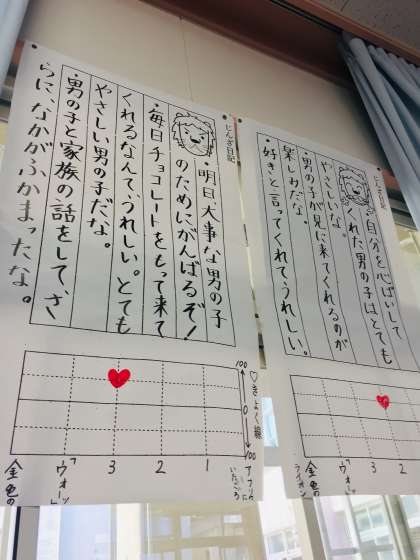 じんざ日記
・自分を心ぱいして
くれた男の子はとても
やさしいな。
・男の子が見に来てくれるのが
楽しみだな。
好きと言ってくれてうれしい。
2
3
「ウォーッ」
金色の
ライオン
じんざ日記
・明日、大事な男の子
のためにがんばるぞ!
・毎日チョコレートをもって来て
くれるなんて、うれしい。とても
やさしい男の子だな。
・男の子と家族の話をして、さ
らに、なかがふかまったな。
♡きょく線
100
0
100
アフリカ
にいたころ
1
2
3
「ウォーッ」
金色の